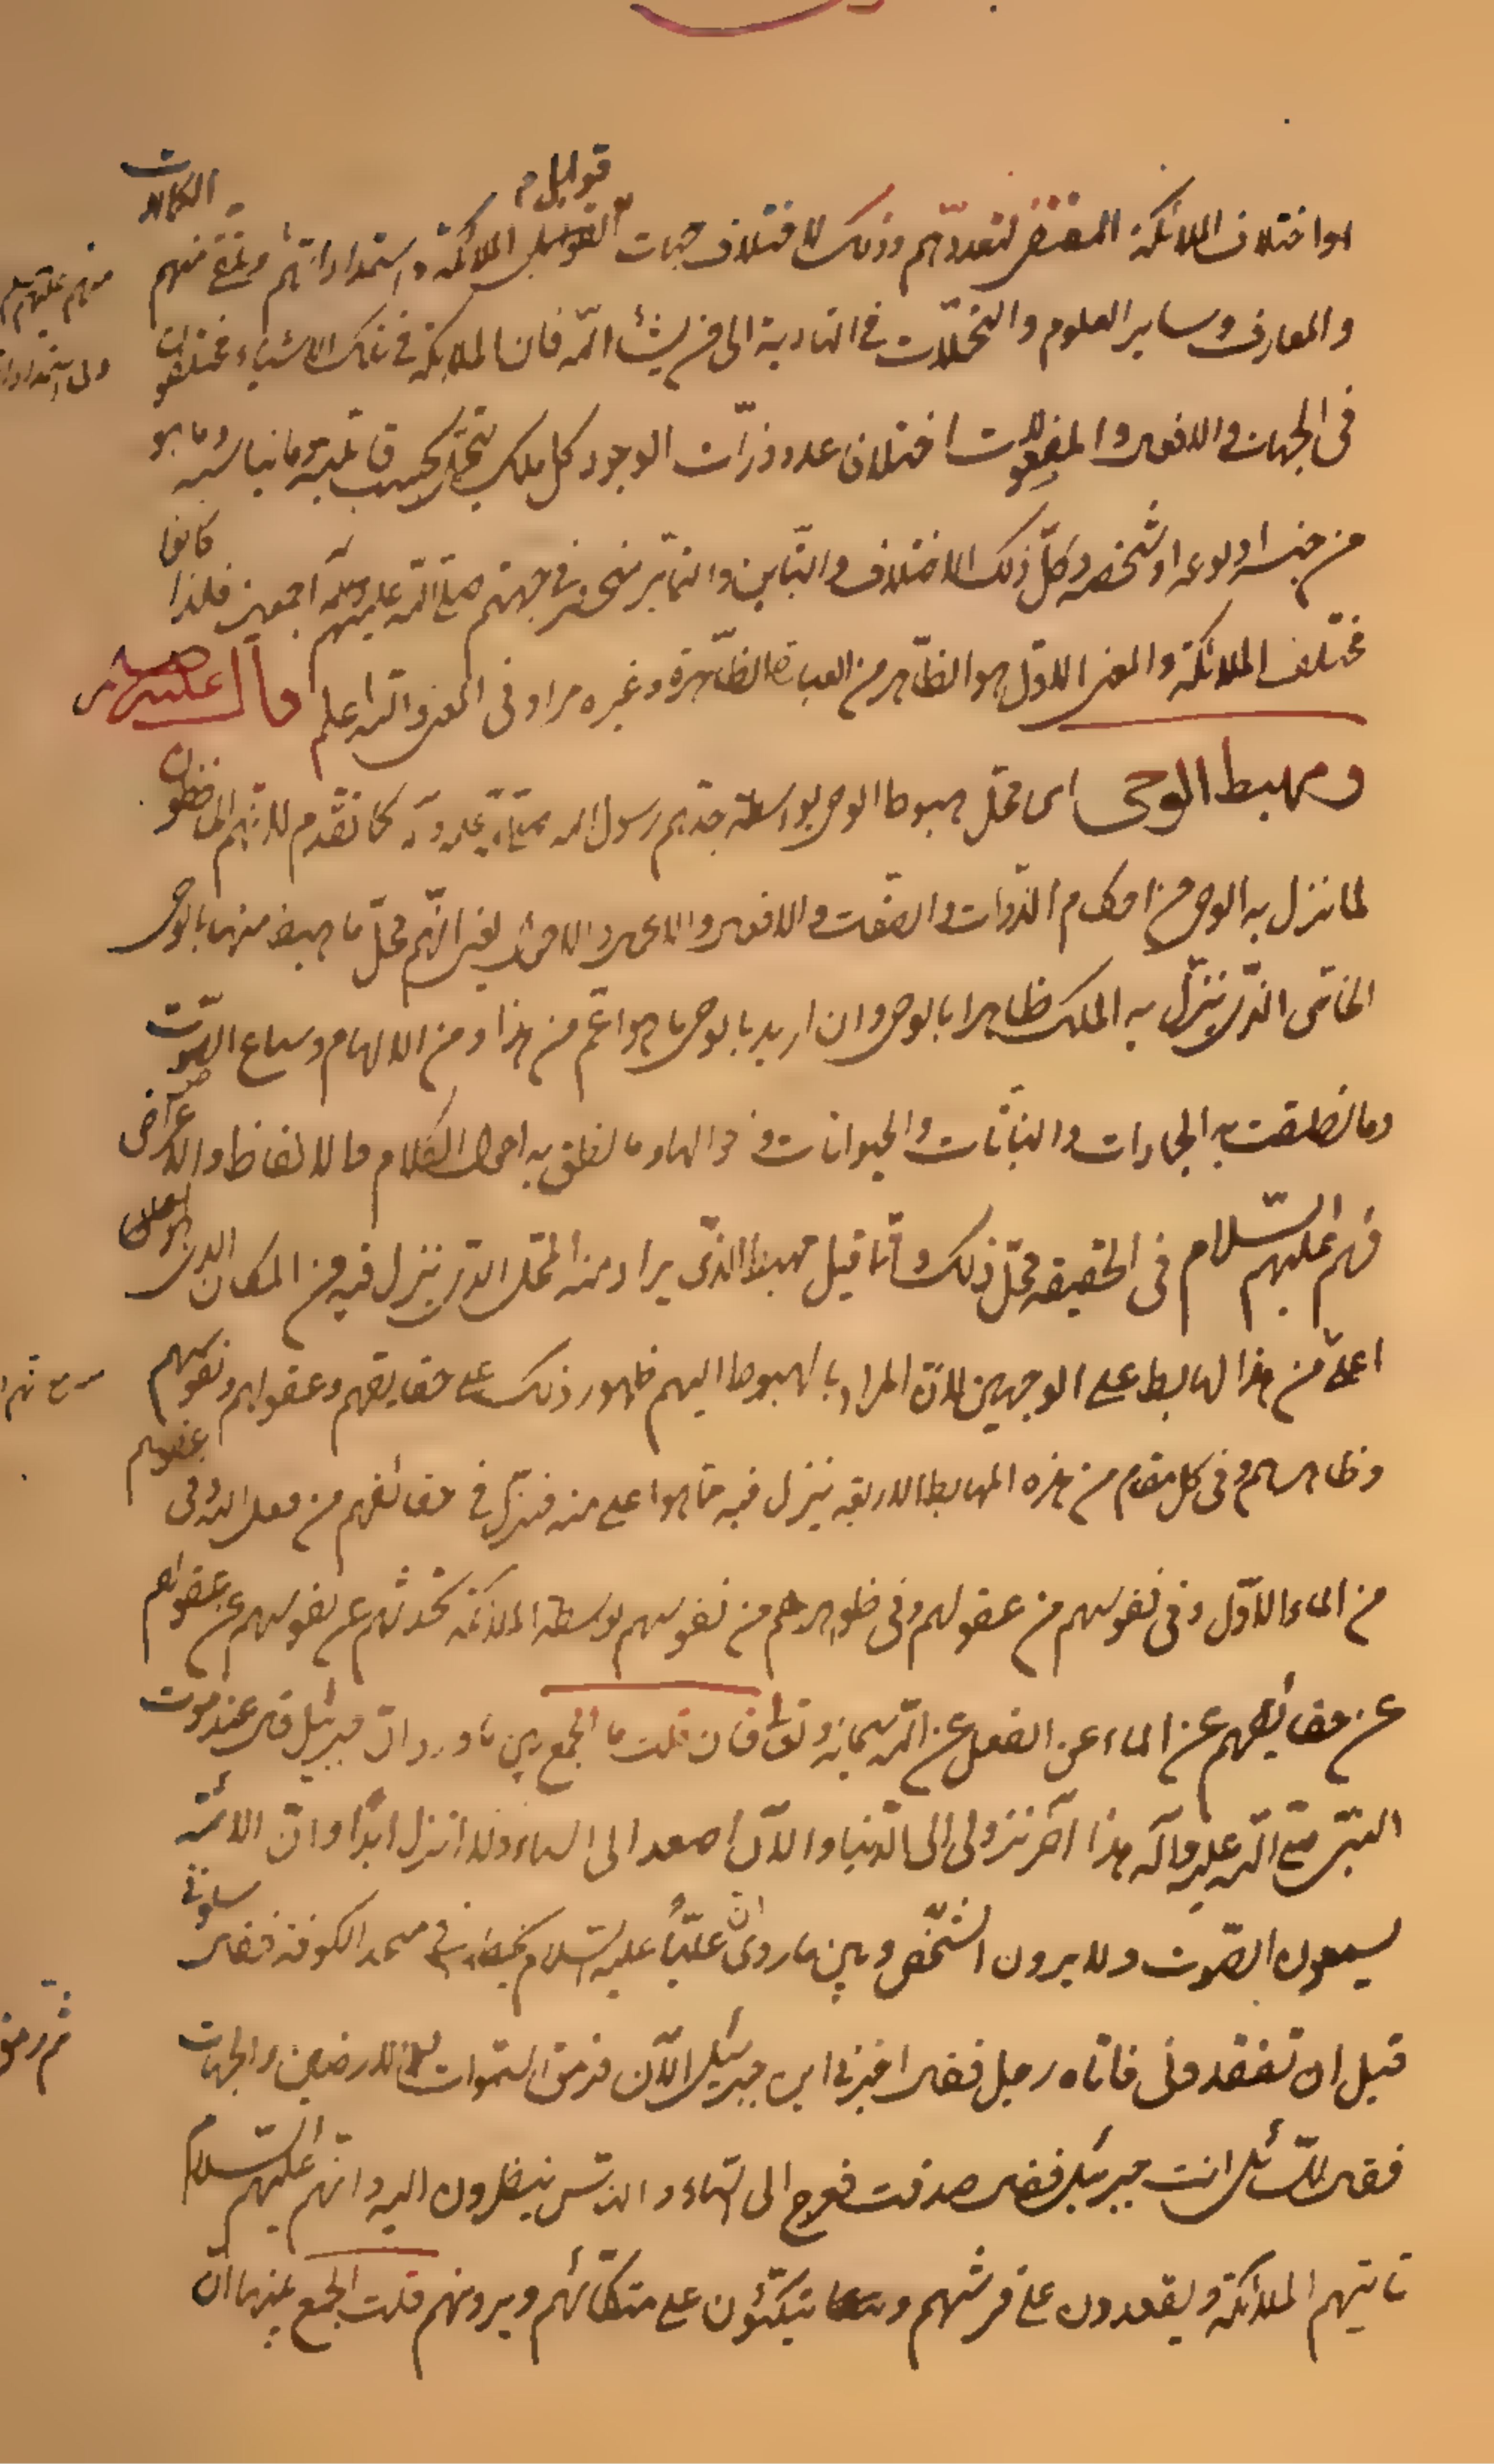 هو اختلاف الملائكة المقتضى لتعددهم وذلك لاختلاف جهات قوابل الملائكة واستعداداتهم وتلقى منهم الكمالات
والمعارف وساير العلوم والتحملات في التادية الى من يشاء الله فان الملائكة في تلك الاشياء مختلفون
في الجهات والاقوال والمفعولات اختلاف عدد ذرات الوجود كل ملك يتحمل بحسب قابليته وما يناسبه وما هو
من جنسه او نوعه او شخصه وكل ذلك الاختلاف والتباين والتمايز منحصر في جهتهم صلى الله عليهم اجمعين فلذا كانوا
مختلف الملائكة والمعنى الاول هو الظاهر من العبارة الظاهرة وغيره مراد في المعنى والله اعلم قال عليه السلام
ومهبط الوحي اي محل هبوط الوحي بواسطة جدهم رسول الله صلى الله عليه وآله كما تقدم لانهم الحافظون
لما نزل به الوحي من احكام الذوات والصفات والاقوال والاعمال والاحوال يعني انهم محل ما هبط منها بالوحي
الخاص الذي ينزل به الملك ظاهرا بالوحي وان اريد بالوحي ما هو اعم من هذا ومن الالهام وسماع الصوت
وما نطقت به الجمادات والنباتات والحيوانات وما نطق به احوال الكلام كالالفاظ والاعراض
فهم عليهم السلام في الحقيقة محل ذلك وانما قيل مهبط الذي يراد منه المحل الذي ينزل فيه من المكان الذي هو
اعلى من هذا الهابط على الوجهين لان المراد بالهبوط اليهم ظهور ذلك على حقايقهم وعقولهم ونفوسهم
وظاهرهم وفي كل مقام من هذه المهابط الاربعة ينزل فيه مما هو اعلى منه فينزل في حقائقهم من فعل الله وفي عقولهم
من الماء الاول وفي نفوسهم من عقولهم وفي ظواهرهم من نفوسهم بواسطة الملائكة تحدثهم عن نفوسهم عن عقولهم
عن حقائقهم عن الماء عن الفعل عن الله سبحانه وتعالى فان قلت ما الجمع بين ما ورد ان جبرئيل قال عند موت
النبي صلى الله عليه وآله هذا آخر نزولي الى الدنيا والآن اصعد الى السماء ولا انزل ابدا وان الائمة
يسمعون الصوت ولا يرون الشخص وبين ما روى ان عليا عليه السلام خطب في مسجد الكوفة فقال سلوني
قبل ان تفقدوني فاتاه رجل فقال اخبرني اين جبرئيل الآن فرمق السموات والارضين والجهات
فقال للسائل انت جبرئيل فقال صدقت فعرج الى السماء والناس ينظرون اليه وانهم عليهم السلام
تاتيهم الملائكة ويقعدون على فرشهم و يتكئون على متكائهم ويرونهم قلت الجمع بينهما ان